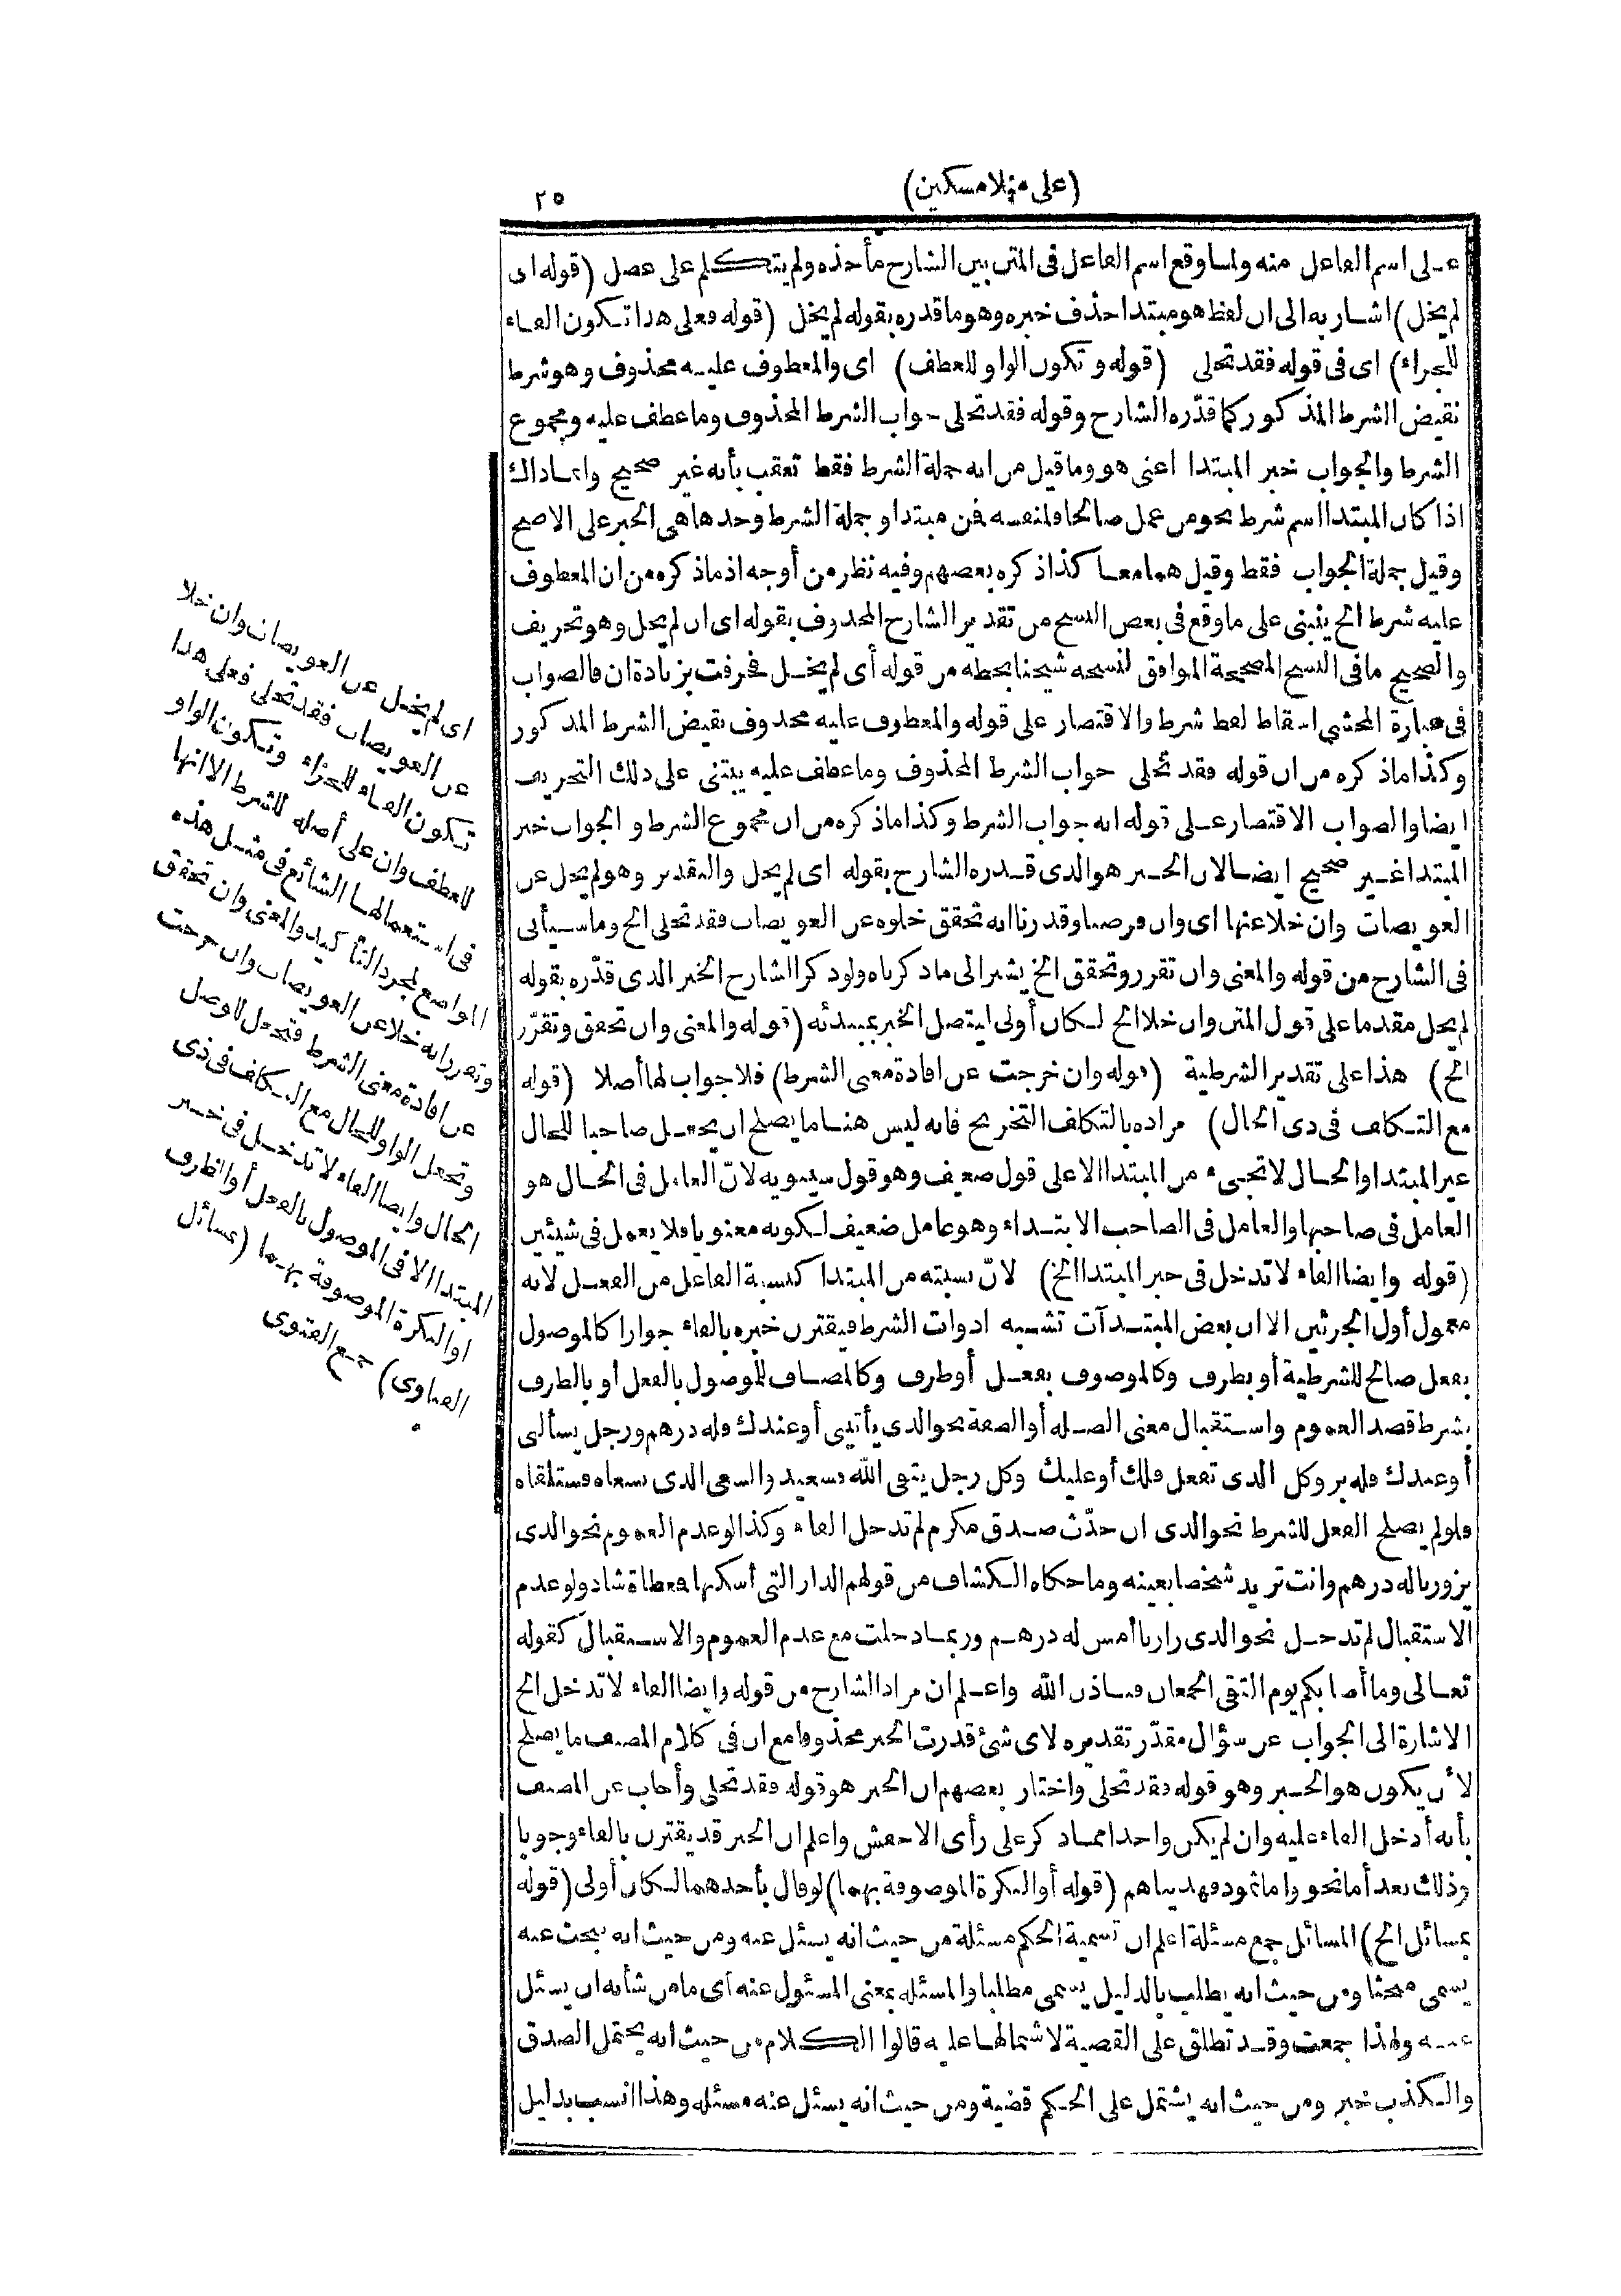 (على منلا مسكين)
٢٥
على اسم الفاعل منه ولما وقع اسم الفاعل فى المتن بين الشارح مأخذه ولم يتكلم على عصل (قوله اى
لم يخل) اشار به الى ان لفظ هو مبتدا حذف خبره وهو ما قدره بقوله لم يخل (قوله فعلى هذا تكون الفاء
للجزاء) اى فى قوله فقد تحلى (قوله وتكون الواو للعطف) اى والمعطوف عليه محذوف وهو شرط
نقيض الشرط المذكور كما قدّره الشارح وقوله فقد تحلى جواب الشرط المحذوف وما عطف عليه ومجموع
الشرط والجواب خبر المبتدا اعنى هو وما قيل من انه جملة الشرط فقط تعقب بأنه غير صحيح وانما ذاك
اذا كان المبتدا اسم شرط نحو من عمل صالحا فلنفسه فمن مبتدا وجملة الشرط وحدها هى الخبر على الاصح
وقيل جملة الجواب فقط وقيل هما معا كذا ذكره بعضهم وفيه نظر من أوجه اذ ما ذكره من ان المعطوف
عليه شرط الخ ينبنى على ما وقع فى بعض النسخ من تقدير الشارح المحذوف بقوله اى ان لم يخل وهو تحريف
والصحيح ما فى النسخ المصححة الموافق لنسخة شيخنا بخطه من قوله أى لم يخل فحرفت بزيادة ان فالصواب
فى عبارة المحشي اسقاط لفظ شرط والاقتصار على قوله والمعطوف عليه محذوف نقيض الشرط المذكور
وكذا ما ذكره من ان قوله فقد تحلى جواب الشرط المحذوف وما عطف عليه يبتنى على ذلك التحريف
ايضا والصواب الاقتصار على قوله انه جواب الشرط وكذا ما ذكره من ان مجموع الشرط والجواب خبر
المبتدا غير صحيح ايضا لان الخبر هو الذى قدره الشارح بقوله اى لم يخل والتقدير وهو لم يخل عن
العويصات وان خلا عنها اى وان فرضنا وقدرنا انه تحقق خلوه عن العويصات فقد تحلى الخ وما سيأتى
فى الشارح من قوله والمعنى وان تقرر وتحقق الخ يشير الى ما ذكرناه ولو ذكر الشارح الخبر الذى قدّره بقوله
لم يخل مقدما على قول المتن وان خلا الخ لكان أولى ليتصل الخبر بمبتدئه (قوله والمعنى وان تحقق وتقرّر
الخ) هذا على تقدير الشرطية (قوله وان خرجت عن افادة معنى الشرط) فلا جواب لها أصلا (قوله
مع التكلف فى ذى الحال) مراده بالتكلف التخريج فانه ليس هنا ما يصلح ان يجعل صاحبا للحال
غير المبتدا والحال لا تجىء من المبتدا الا على قول ضعيف وهو قول سيبويه لانّ العامل فى الحال هو
العامل فى صاحبها والعامل فى الصاحب الابتداء وهو عامل ضعيف لكونه معنويا فلا يعمل فى شيئين
(قوله وايضا الفاء لا تدخل فى خبر المبتدا الخ) لانّ نسبته من المبتدا كنسبة الفاعل من الفعل لانه
معمول أول الجزئين الا ان بعض المبتدآت تشبه ادوات الشرط فيقترن خبره بالفاء جوازا كالموصول
بفعل صالح للشرطية أو بظرف وكالموصوف بفعل أو ظرف وكالمضاف للموصول بالفعل أو بالظرف
بشرط قصد العموم واستقبال معنى الصلة أو الصفة نحو الذى يأتينى أو عندك فله درهم ورجل يسألنى
أو عندك فله بر وكل الذى تفعل فلك أو عليك وكل رجل يتقى الله فسعيد والسعى الذى تسعاه فستلقاه
فلو لم يصلح الفعل للشرط نحو الذى ان حدّث صدق مكرم لم تدخل الفاء وكذا لو عدم العموم نحو الذى
يزورنا له درهم وانت تريد شخصا بعينه وما حكاه الكشاف من قولهم الدار التى أسكنها فمعطاة شاذ ولو عدم
الاستقبال لم تدخل نحو الذى زارنا أمس له درهم وربما دخلت مع عدم العموم والاستقبال كقوله
تعالى وما أصابكم يوم التقى الجمعان فباذن الله واعلم ان مراد الشارح من قوله وايضا الفاء لا تدخل الخ
الاشارة الى الجواب عن سؤال مقدّر تقديره لاى شئ قدرت الخبر محذوفا مع ان فى كلام المصنف ما يصلح
لأن يكون هو الخبر وهو قوله فقد تحلى واختار بعضهم ان الخبر هو قوله فقد تحلى وأجاب عن المصنف
بأنه أدخل الفاء عليه وان لم يكن واحدا مما ذكر على رأى الاخفش واعلم ان الخبر قد يقترن بالفاء وجوبا
وذلك بعد أما نحو واما ثمود فهديناهم (قوله أو النكرة الموصوفة بهما) لو قال بأحدهما لكان أولى (قوله
بمسائل الخ) المسائل جمع مسئلة اعلم ان تسمية الحكم مسئلة من حيث انه يسئل عنه ومن حيث انه يبحث عنه
يسمى مبحثا ومن حيث انه يطلب بالدليل يسمى مطلبا والمسئله بمعنى المسئول عنه أى ما من شأنه ان يسئل
عنه ولهذا جمعت وقد تطلق على القضية لاشتمالها عليه قالوا الكلام من حيث انه يحتمل الصدق
والكذب خبر ومن حيث انه يشتمل على الحكم قضية ومن حيث انه يسئل عنه مسئله وهذا انسب بدليل
اى لم يخل عن العويصات وان خلا
عن العويصات فقد تحلى فعلى هذا
تكون الفاء للجزاء وتكون الواو
للعطف وان على أصله للشرط الا انها
فى استعمالها الشائع فى مثل هذه
المواضع لمجرد التأكيد والمعنى وان تحقق
وتقرر انه خلا عن العويصات وان خرجت
عن افادة معنى الشرط فتجعل للوصل
وتجعل الواو للحال مع التكلف فى ذى
الحال وايضا الفاء لا تدخل فى خبر
المبتدا الا فى الموصول بالفعل أو الظرف
او النكرة الموصوفة بهما (بمسائل
الفتاوى) جمع الفتوى